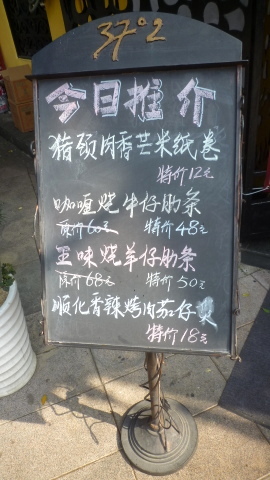 37°2
今日推介
猪颈肉香芒米纸卷
特价12元
咖喱烧牛仔肋条
原价60元 特价48元
五味烧羊仔肋条
原价68元 特价50元
顺化香辣烤肉茄仔煲
特价18元